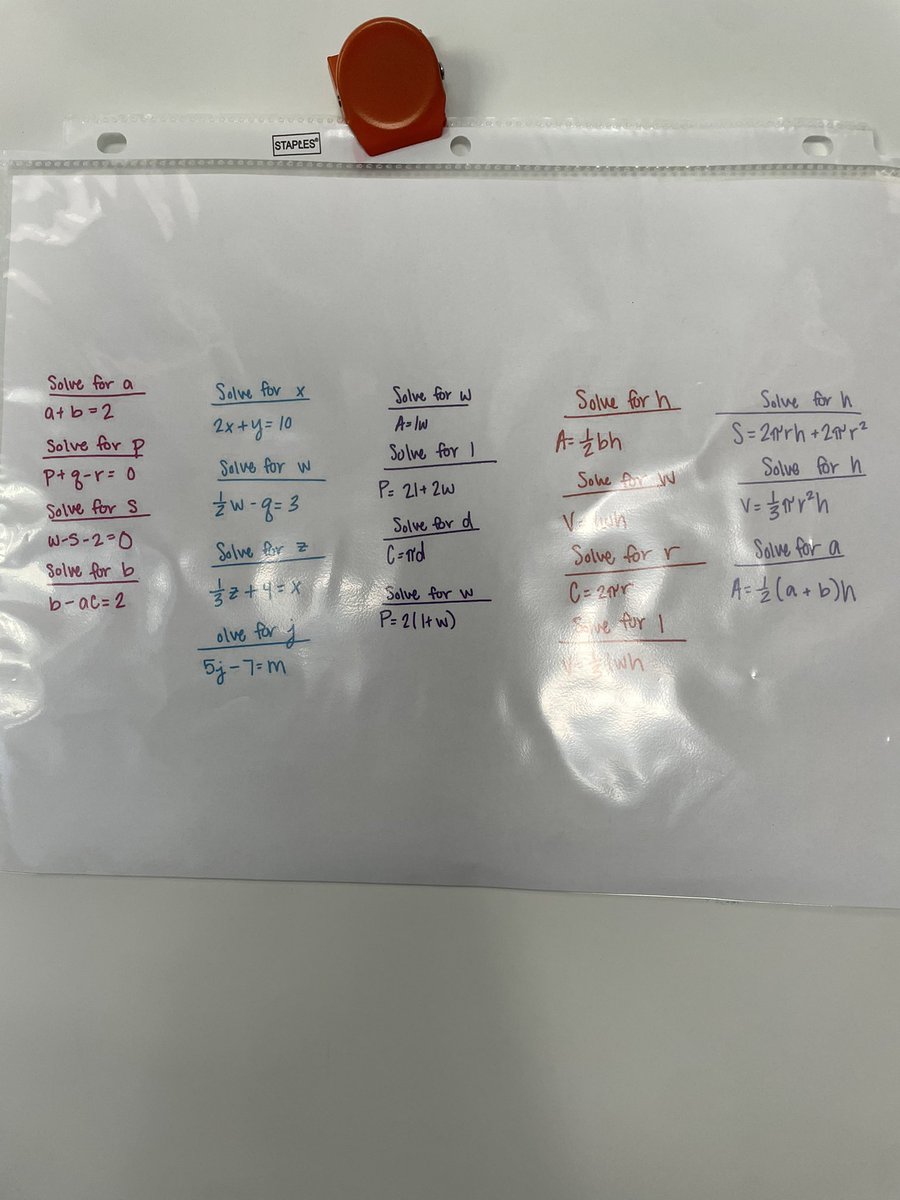 STAPLES®
Solve for a
a+b=2
Solve for p
p+q-r=0
Solve for s
w-s-2=0
Solve for b
b-ac=2
Solve for x
2x+y=10
Solve for w
½w-q=3
Solve for z
⅓z+4=x
olve for j
5j-7=m
Solve for w
A=lw
Solve for l
P=2l+2w
Solve for d
C=πd
Solve for w
P=2(l+w)
Solve for h
A=½bh
Solve for w
V=lwh
Solve for r
C=2πr
Solve for l
lwh
Solve for h
S=2πrh+2πr²
Solve for h
V=⅓πr²h
Solve for a
A=½(a+b)h